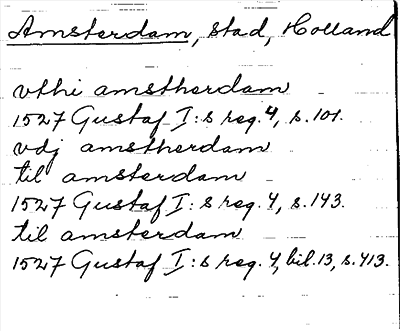 Amsterdam, stad, Holland
vthi amstherdam
1527 Gustaf I:s reg. 4, s. 101.
vdj amstherdam
til amsterdam
1527 Gustaf I:s reg. 4, s. 143.
til amsterdam
1527 Gustaf I:s reg. 4, bil. 13, s. 413.